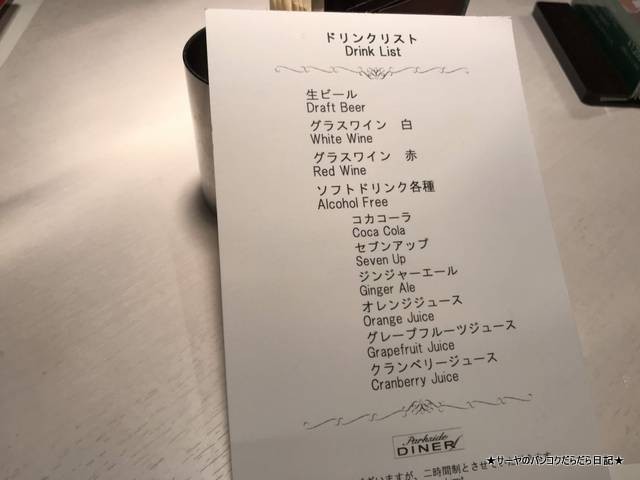 ドリンクリスト
Drink List
生ビール
Draft Beer
グラスワイン　白
White Wine
グラスワイン　赤
Red Wine
ソフトドリンク各種
Alcohol Free
コカコーラ
Coca Cola
セブンアップ
Seven Up
ジンジャーエール
Ginger Ale
オレンジジュース
Orange Juice
グレープフルーツジュース
Grapefruit Juice
クランベリージュース
Cranberry Juice
Parkside
DINER
ございますが、二時間制とさせて
★サーヤのバンコクだらだら日記★